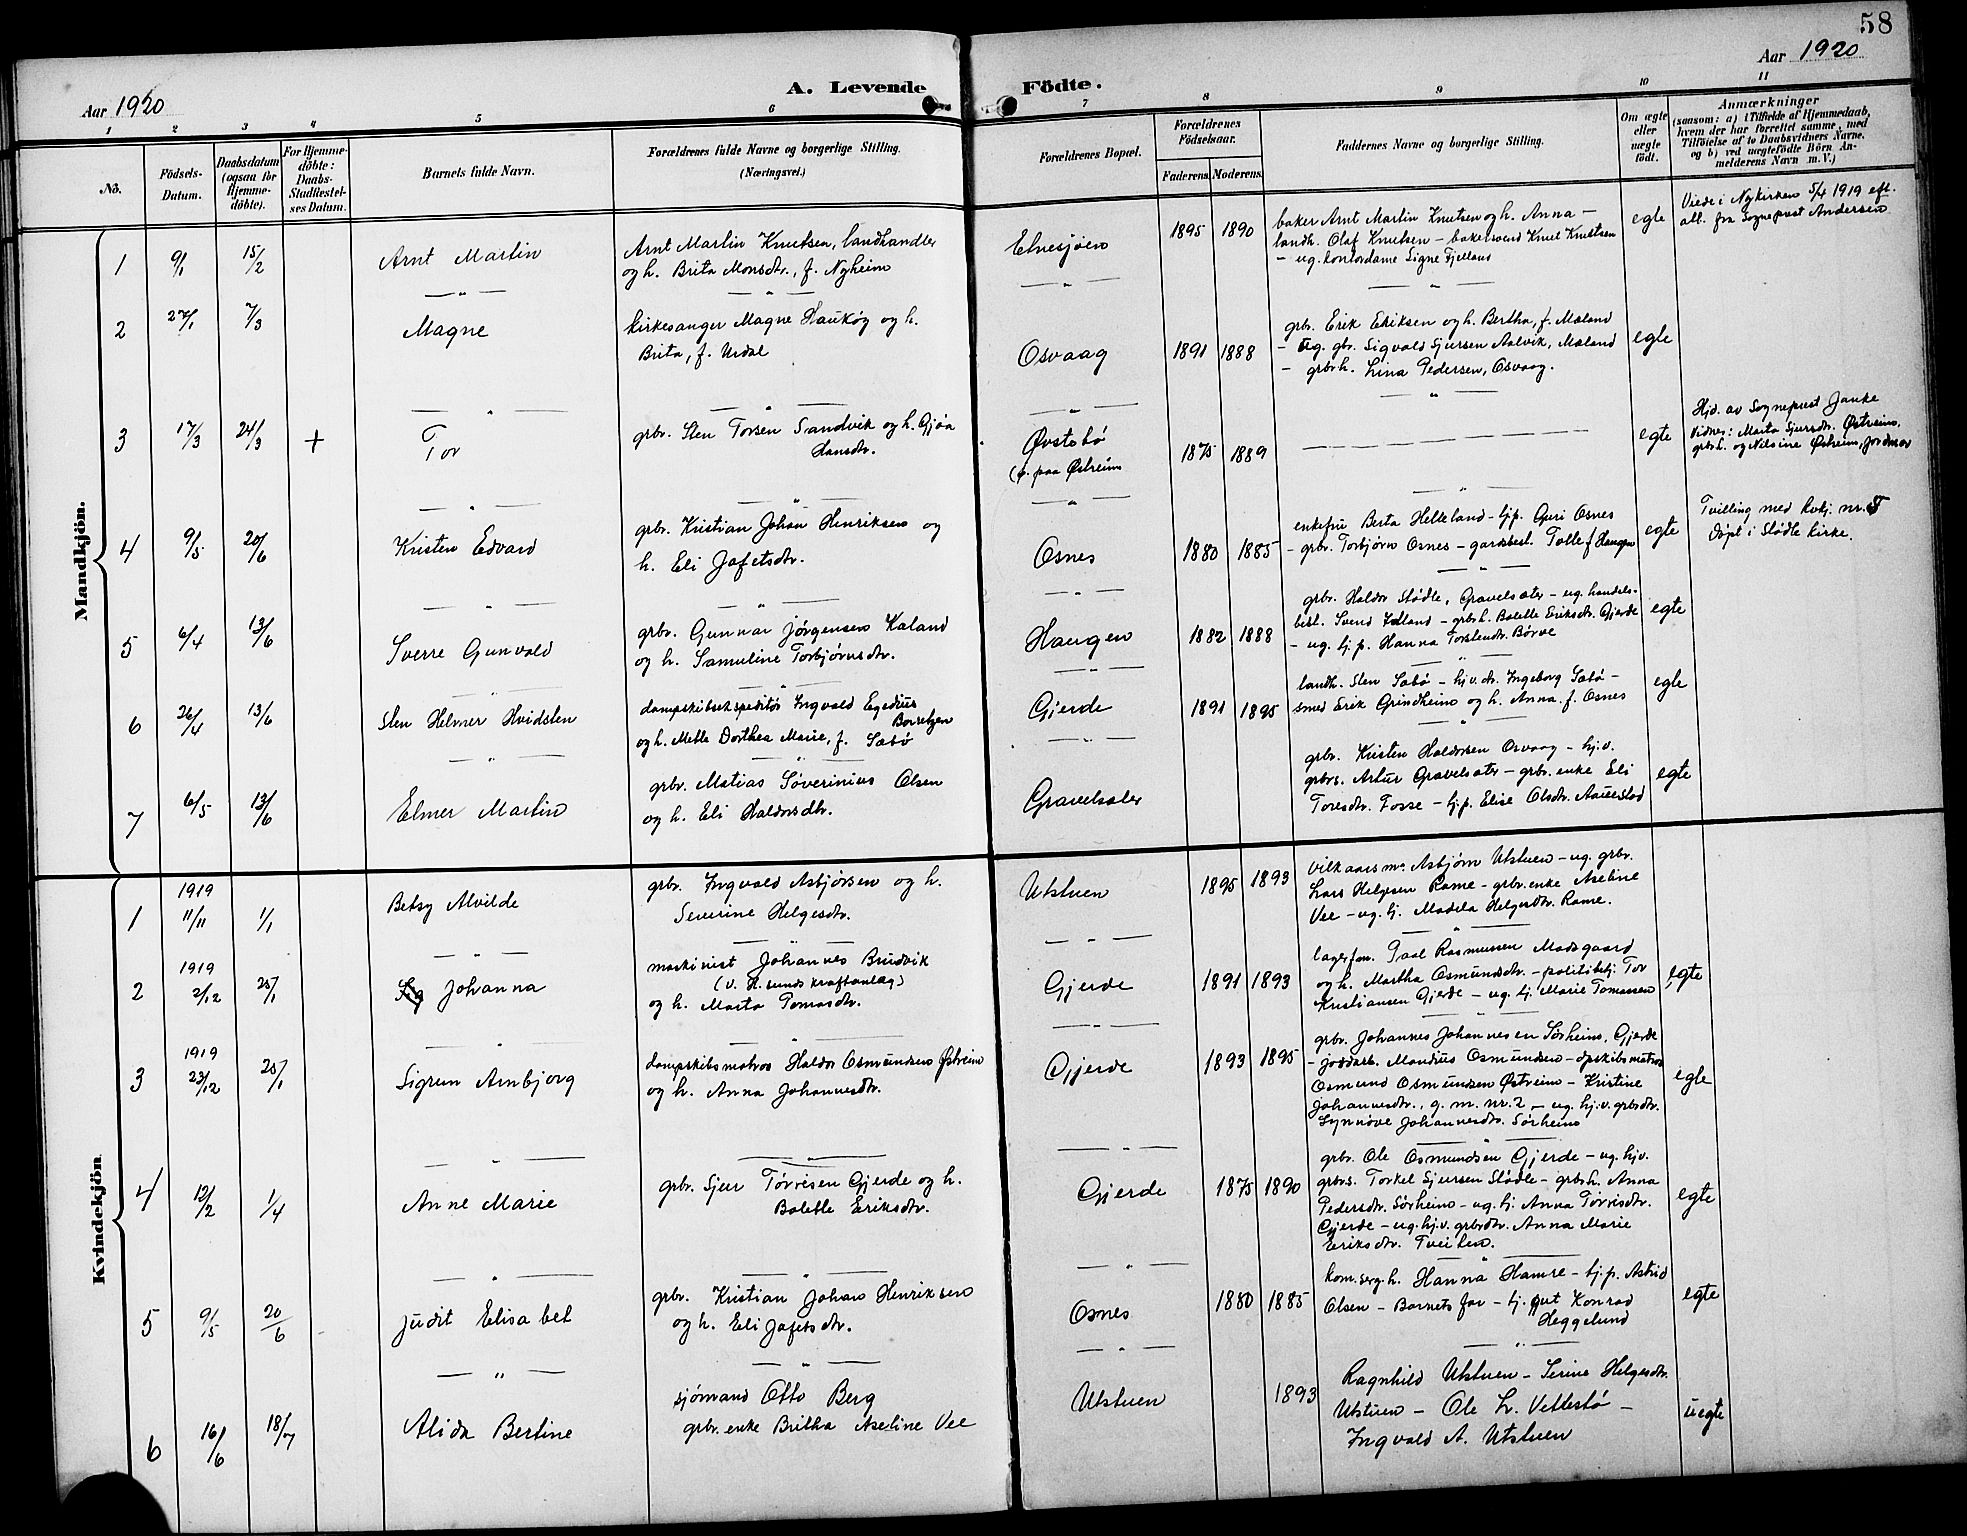 58
Aar 1920
A. Levende Födte.
Aar 1920
1 2 3 4 5 6 7 8 9 10 11
No.
Födsels-Datum.
Daabsdatum (ogsaa for Hjemme-döbte).
For Hjemme-döbte: Daabs-Stadfæstel-ses Datum.
Barnets fulde Navn.
Forældrenes fulde Navne og borgerlige Stilling. (Næringsvei.)
Forældrenes Bopæl.
Forældrenes Födselsaar.
Faderens. Moderens.
Faddernes Navne og borgerlige Stilling.
Om ægte eller uægte födt.
Anmærkninger
(saasom: a) i Tilfælde af Hjemmedaab,
hvem der har forrettet samme, med
Tilföielse af to Daabsvidners Navne,
og b) ved uægtefödte Börn An-
melderens Navn m. V.)
Mandkjön.
1 9/1 15/2 Arnt Martin
Arnt Martin Knutsen, landhandler
og h. Brita Monsdtr., f. Nyheim
Etnesjøen 1895 1890
baker Arnt Martin Knutsen og h. Anna –
landh. Olaf Knutsen – bakersvend Knut Knutsen
– ug. kontordame Signe Fjelland
egte
Viede i Nykirken 5/4 1919 eft.
att. fra Sogneprest Andersen
2 27/1 7/3 Magne
kirkesanger Magne Haukøy og h.
Brita, f. Urdal
Osvaag 1891 1888
grbr. Erik Eriksen og h. Bertha, f. Mæland
– ug. gbr. Sigvald Sjursen Aalvik, Mæland
– grbrh. Lina Pedersen, Osvaag.
egte
3 17/3 24/3 + Tor
grbr. Sten Torsen Sandvik og h. Gjøa
Hansdtr.
Øvstebø
(p. paa Østreim 1875 1889
egte
Hjd. av Sogneprest Janke
Vidner: Marta Sjursdtr. Østreim,
grbrh. og Nilsine Østreim, jordmor
4 9/5 20/6 Kristen Edvard
grbr. Kristian Johan Henriksen og
h. Eli Jafetsdtr.
Osnes 1880 1885
enkefru Berta Helleland – tj.p. Guri Osnes
– grbr. Torbjørn Osnes – gardsbest. Tollef Haugen
egte
Tvilling med kvkj. nr. 5
Døpt i Stødle kirke.
5 6/4 13/6 Sverre Gunvald
grbr. Gunnar Jørgensen Kaland
og h. Samuline Torbjørnsdtr.
Haugen 1882 1888
grbr. Haldor Stødle, Gravelsæter – ug. handels-
best. Svend Ihlland – grbrh. Bolette Eriksdtr. Gjerde
– ug. tj.p. Hanna Torstendtr. Børve
egte
6 26/4 13/6 Sten Helmer Hvidsten
dampskibsekspeditør Ingvald Egedius
Borretzen
og h. Mette Dorthea Marie, f. Sæbø
Gjerde 1891 1895
landh. Sten Sæbø – hj.v. dtr. Ingeborg Sæbø –
smed Erik Grindheim og h. Anna, f. Osnes
egte
7 6/5 13/6 Elmer Martin
grbr. Matias Søverinius Olsen
og h. Eli Haldorsdtr.
Gravelsæter
grbr. Kristen Haldorsen Osvaag – hj.v.
grbrs. Artur Gravelsæter – grbr. enke Eli
Toresdtr. Fosse – tj.p. Elise Olsdtr. Aarestad
egte
Kvindekjön
1 1919 11/11 1/1 Betsy Alvilde
grbr. Ingvald Asbjørsen og h.
Severine Helgesdtr.
Utstuen 1895 1893
vilkaarsm. Asbjørn Utstuen – ug. grbr.
Lars Helgesen Rame – grbr. enke Aseline
Vee – ug. tj. Madela Helgesdtr. Rame.
2 1919 2/12 25/1 Johanna
maskinist Johannes Brudvik
(v. H.sunds kraftanlæg)
og h. Marta Tomasdtr.
Gjerde 1891 1893
lagerfor. Paal Rasmussen Madsgaard
og h. Martha Osmundsdtr. – politibetj. Tor
Kristiansen Gjerde – ug. tj. Marie Tomassen
egte
3 1919 23/12 25/1 Sigrun Arnbjorg
dampskibsmatros Haldor Osmundsen Østreim
og h. Anna Johannesdtr.
Gjerde 1893 1895
grbr. Johannes Johannesen Sørheim, Gjerde
– jordarb. Mandius Osmundsen – dpskibsmatros
Osmund Osmundsen Østreim – Kristine
Johannesdtr., g. m. nr. 2 – ug. hj.v. grbrdtr.
Synnøve Johannesdtr. Sørheim
egte
4 12/2 1/4 Anne Marie
grbr. Sjur Tørrisen Gjerde og h.
Bolette Eriksdtr.
Gjerde 1875 1890
grbr. Ole Osmundsen Gjerde – ug. hjv.
grbrs. Torkel Sjursen Stødle – grbrh. Anna
Pedersdtr. Sørheim – ug. tj. Anna Tørrisdtr.
Gjerde – ug. hj.v. grbrdtr. Anna Marie
Eriksdtr. Tveiten.
egte
5 9/5 20/6 Judit Elisabet
grbr. Kristian Johan Henriksen
og h. Eli Jafetsdtr.
Osnes 1880 1885
kom.serg.h. Hanna Hamre – tj.p. Astrid
Olsen – Barnets far – tj.gut Konrad
Heggelund
egte
6 16/6 18/7 Alida Bertine
sjømand Otto Berg
grbr. enke Britha Aseline Vee
Utstuen 1893
Ragnhild Utstuen – Serine Helgesdtr.
Utstuen – Ole L. Vettestø –
Ingvald A. Utstuen
uegte